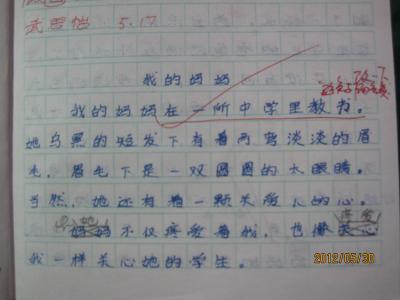 5.17
我的妈妈
我的妈妈在一所中学里教书。
她乌黑的短发下有着两弯淡淡的眉
毛，眉毛下是一双圆圆的大眼睛。
当然，她还有着一颗关爱人的心。
妈妈不仅疼爱着我，也像关心
我一样关心她的学生。
2012/05/20